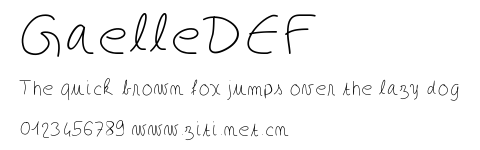 GaelleDEF
The quick brown fox jumps over the lazy dog
0123456789 www.ziti.net.cn